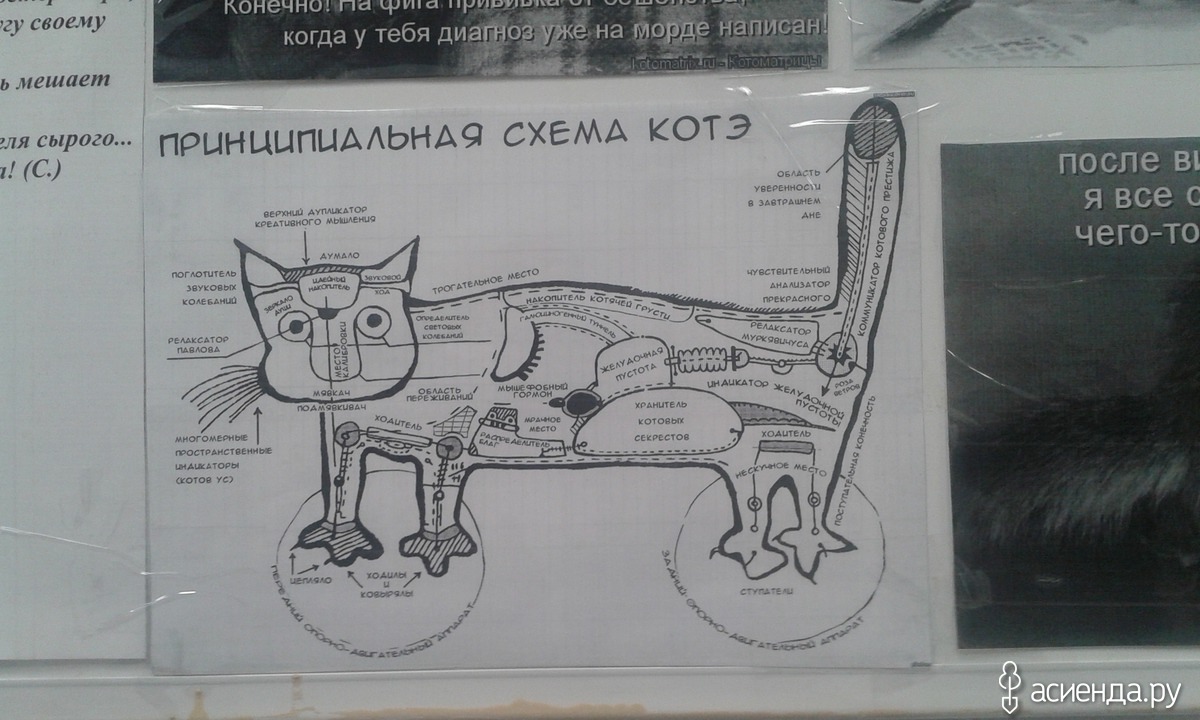 угу своему
ь мешает
еля сырого...
а! (С.)
Конечно! На фига прививка от бешенства,
когда у тебя диагноз уже на морде написан!
Kotomatrix.ru - Котоматрицы
ПРИНЦИПИАЛЬНАЯ СХЕМА КОТЭ
ОБЛАСТЬ
УВЕРЕННОСТИ
В ЗАВТРАШНЕМ
ДНЕ
КОММУНИКАТОР КОТОВОГО ПРЕСТИЖА
ВЕРХНИЙ ДУПЛИКАТОР
КРЕАТИВНОГО МЫШЛЕНИЯ
ДУМАЛО
ПОГЛОТИТЕЛЬ
ЗВУКОВЫХ
КОЛЕБАНИЙ
ИДЕЙНЫЙ
НАКОПИТЕЛЬ
ЗВУКОВОЙ
ХОД
ЗЕРКАЛО
ДУШИ
ТРОГАТЕЛЬНОЕ МЕСТО
НАКОПИТЕЛЬ КОТЯЧЕЙ ГРУСТИ
ЧУВСТВИТЕЛЬНЫЙ
АНАЛИЗАТОР
ПРЕКРАСНОГО
ОПРЕДЕЛИТЕЛЬ
СВЕТОВЫХ
КОЛЕБАНИЙ
ГАЛЮШНОГЕННЫЙ ТУННЕЛЬ
РЕЛАКСАТОР
МУРКЯВИЧУСА
РЕЛАКСАТОР
ПАВЛОВА
МЕСТО
КАЛИБРОВКИ
ЖЕЛУДОЧНАЯ
ПУСТОТА
ИНДИКАТОР ЖЕЛУДОЧНОЙ
ПУСТОТЫ
РОЗА
ВЕТРОВ
МЯВКАЧ
ПОДМЯВКИВАЧ
ОБЛАСТЬ
ПЕРЕЖИВАНИЙ
МЫШЕФОБНЫЙ
ГОРМОН
МРАЧНОЕ
МЕСТО
РАСПРЕДЕЛИТЕЛЬ
БЛАГ
ХРАНИТЕЛЬ
КОТОВЫХ
СЕКРЕСТОВ
ХОДИТЕЛЬ
ХОДИТЕЛЬ
НЕСКУЧНОЕ МЕСТО
ПОСТУПАТЕЛЬНАЯ КОНЕЧНОСТЬ
МНОГОМЕРНЫЕ
ПРОСТРАНСТВЕННЫЕ
ИНДИКАТОРЫ
(КОТОВ УС)
ЦЕПЛЯЛО
ХОДИЛЫ
И
КОВЫРЯЛЫ
СТУПАТЕЛИ
ПЕРЕДНИЙ ОПОРНО-ДВИГАТЕЛЬНЫЙ АППАРАТ
ЗАДНИЙ ОПОРНО-ДВИГАТЕЛЬНЫЙ АППАРАТ
после ви
я все с
чего-то
асиенда.ру